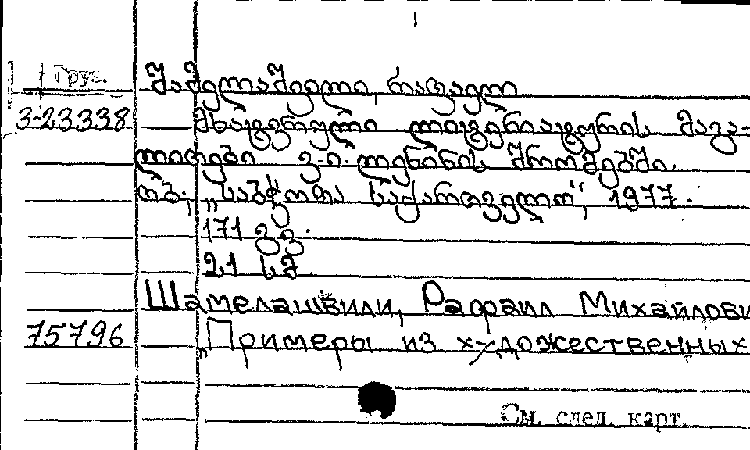 Груз.
შამელაშვილი, რაფაელ
3-23338 მხატვრული ლიტერატურის მაგა-
ლითები ვ.ი. ლენინის შრომებში.
თბ., „საბჭოთა საქართველო", 1977.
171 გვ.
21 სმ
Шамелашвили, Рафаил Михайлови
75796 „Примеры из художественных
См. след. карт.